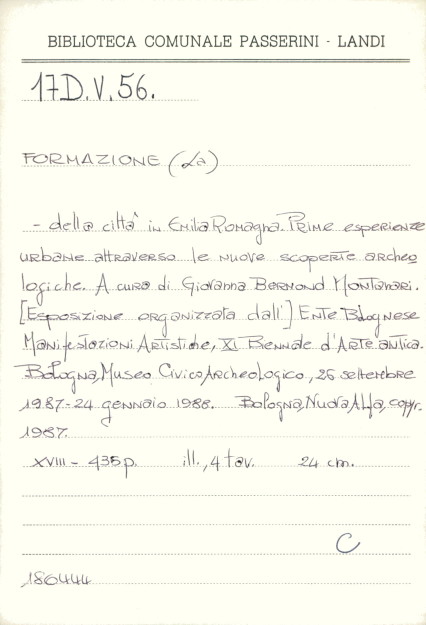 BIBLIOTECA COMUNALE PASSERINI - LANDI
17D.V.56.
FORMAZIONE (La)
- della città in Emilia Romagna. Prime esperienze
urbane attraverso le nuove scoperte archeo
logiche. A cura di Giovanna Bermond Montanari.
[Esposizione organizzata dall'] Ente Bolognese
Manifestazioni Artistiche, XI Biennale d'Arte antica.
Bologna, Museo Civico Archeologico, 26 settembre
1987-24 gennaio 1988. Bologna, Nuova Alfa, copyr.
1987.
XVIII - 435 p. ill., 4 tav. 24 cm.
C
186444